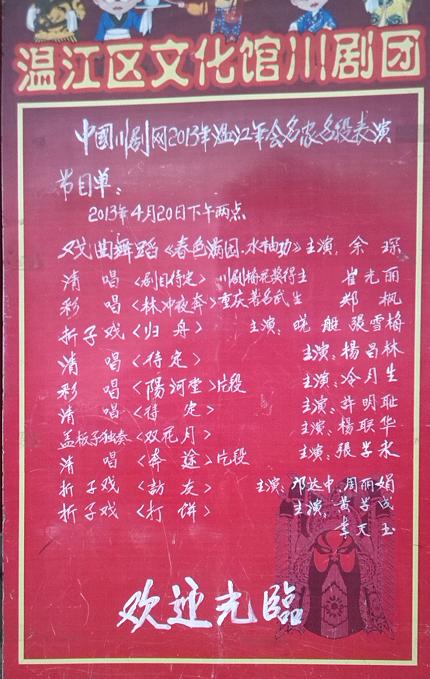 温江区文化馆川剧团
中國川剧网2013年温江年会名家名段表演
节目单:
2013年4月20日下午两点
戏曲舞蹈《春色满园.水袖功》主演:余琛
清唱<剧目待定>川剧梅花奖得主 崔光丽
彩唱<林冲夜奔>重庆著名武生 郑枫
折子戏<归舟> 主演:晓艇 張雪梅
清唱<待定> 主演:楊昌林
彩唱<陽河堂>片段 主演:冷月生
清唱<待定> 主演:許明耻
盖板子独奏<双花月> 主演:楊联华
清唱<奔途>片段 主演:張孝永
折子戏<訪友> 主演:邓达中.周丽娟
折子戏<打饼> 主演:黄学成
李天玉
欢迎光臨